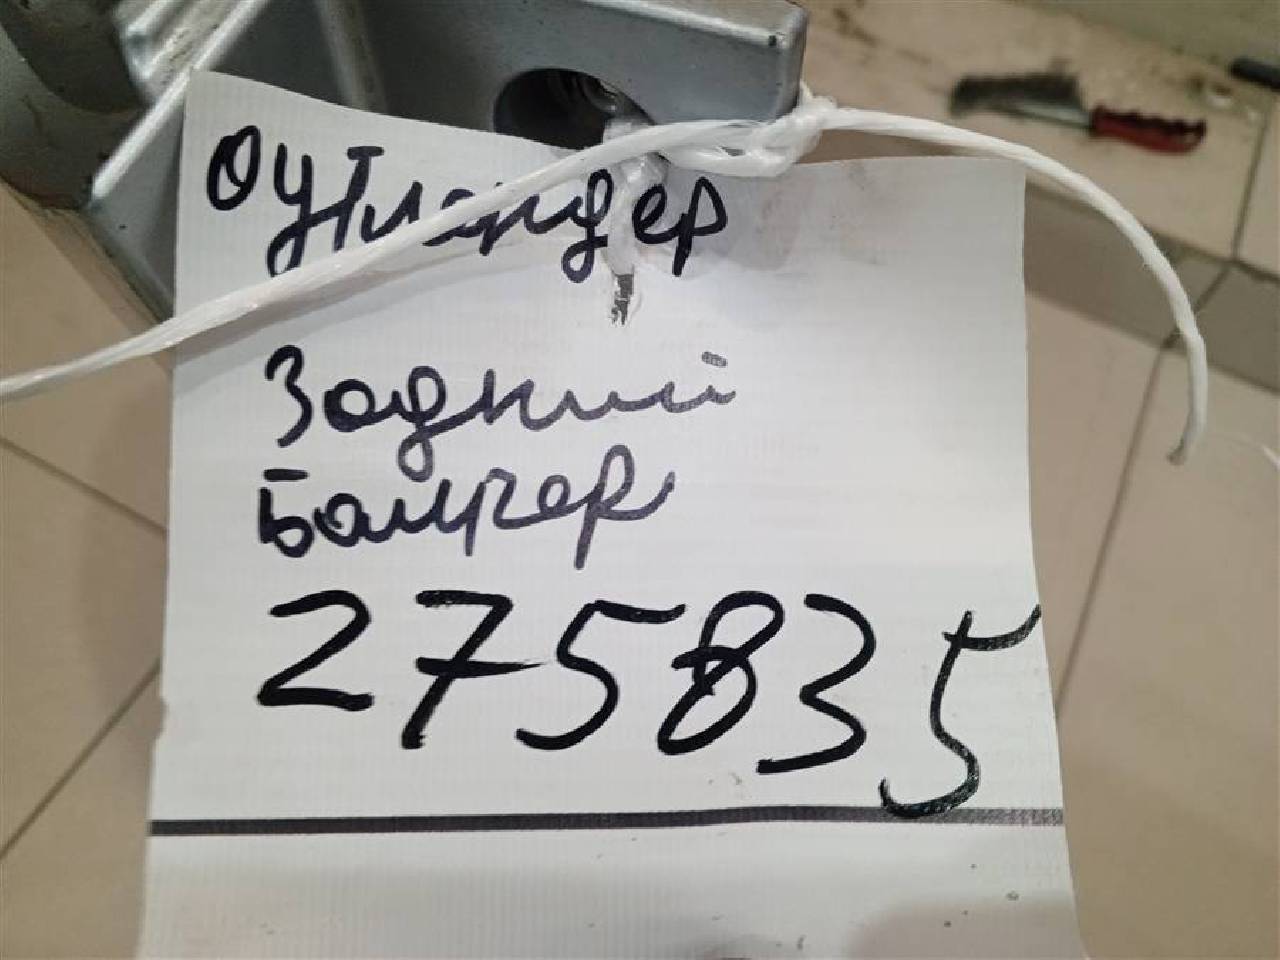 Оутлендер
Задний
Бампер
275835